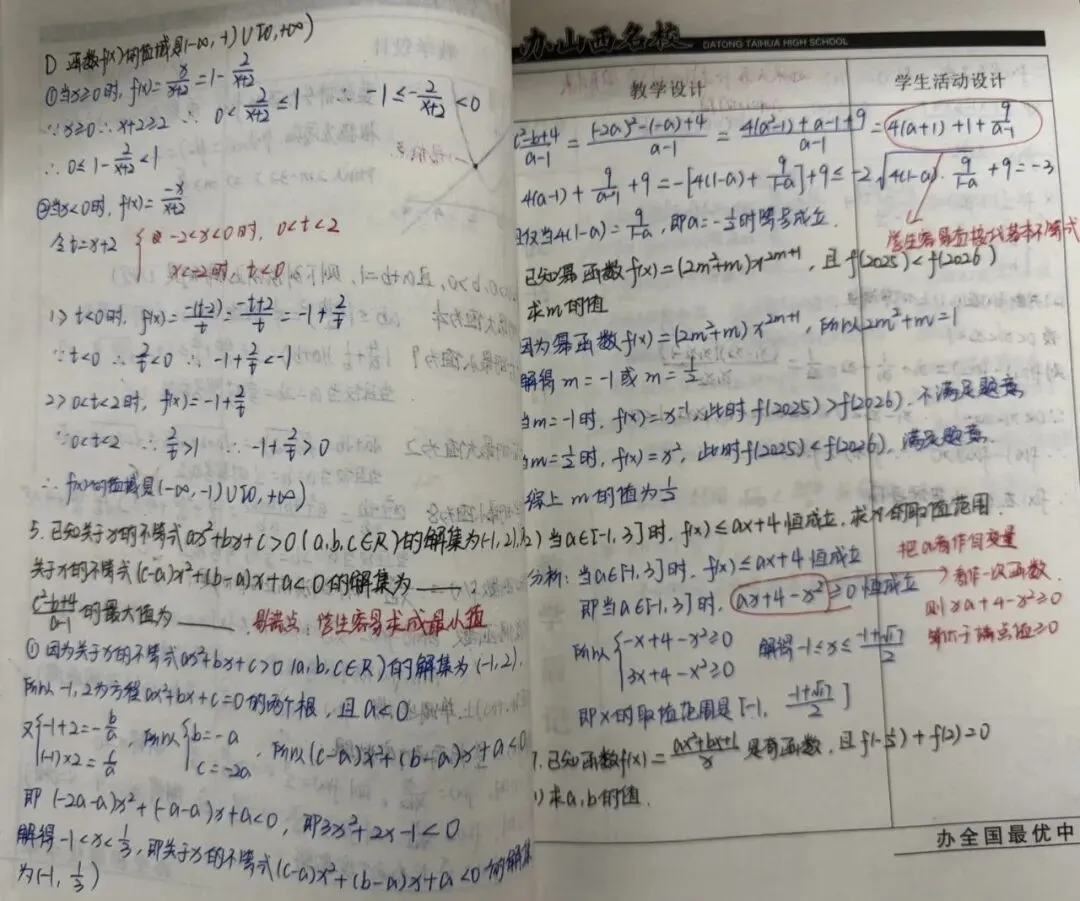 D 函数f(x)的值域是(-∞, -1)∪[0, +∞)
①当x≥0时, f(x)=x/(x+2)=1-2/(x+2)
∵x≥0 ∴x+2≥2 ∴ 0<2/(x+2)≤1 -1≤-2/(x+2)<0
∴ 0≤1-2/(x+2)<1
②当x<0时, f(x)=-x/(x+2)
令t=x+2 { 当-2<x<0时, 0<t<2
x<-2时, t<0
1> t<0时, f(x)=-(t-2)/t=(-t+2)/t=-1+2/t
∵t<0 ∴2/t<0 ∴-1+2/t<-1
2> 0<t<2时, f(x)=-1+2/t
∵0<t<2 ∴2/t>1 ∴-1+2/t>0
∴ f(x)的值域是(-∞, -1)∪[0, +∞)
5. 已知关于x的不等式ax²+bx+c>0(a,b,c∈R)的解集为(-1,2),
关于x的不等式(c-a)x²+(b-a)x+a<0的解集为______,
(c²-b+4)/(a-1)的最大值为______. 易错点: 学生容易求成最小值
① 因为关于x的不等式ax²+bx+c>0(a,b,c∈R)的解集为(-1,2).
所以-1,2为方程ax²+bx+c=0的两个根, 且a<0.
又{-1+2=-b/a, (-1)×2=c/a, 所以{b=-a, c=-2a. 所以(c-a)x²+(b-a)x+a<0
即(-2a-a)x²+(-a-a)x+a<0, 即3x²+2x-1<0
解得-1<x<1/3, 即关于x的不等式(c-a)x²+(b-a)x+a<0的解集
为(-1, 1/3)
办山西名校 DATONG TAIHUA HIGH SCHOOL
教学设计 学生活动设计
(c²-b+4)/(a-1)=((-2a)²-(-a)+4)/(a-1)=(4(a²-1)+a-1+9)/(a-1)=4(a+1)+1+9/(a-1)
4(a-1)+9/(a-1)+9=-[4(1-a)+9/(1-a)]+9≤-2√(4(1-a)·9/(1-a))+9=-3
且仅当4(1-a)=9/(1-a), 即a=-1/2时等号成立.
学生容易直接找基本不等式
已知幂函数f(x)=(2m²+m)x^(2m+1), 且f(2025)<f(2026)
求m的值
因为幂函数f(x)=(2m²+m)x^(2m+1), 所以2m²+m=1
解得m=-1或m=1/2
当m=-1时, f(x)=x⁻¹, 此时f(2025)>f(2026). 不满足题意
当m=1/2时, f(x)=x², 此时f(2025)<f(2026), 满足题意.
综上m的值为1/2
2) 当a∈[-1,3]时, f(x)≤ax+4恒成立, 求x的取值范围.
分析: 当a∈[-1,3]时, f(x)≤ax+4恒成立 把a看作自变量
即当a∈[-1,3]时, ax+4-x²≥0恒成立 看作一次函数
所以{-x+4-x²≥0, 3x+4-x²≥0 解得-1≤x≤(-1+√17)/2 则xa+4-x²≥0
等价于端点值≥0
即x的取值范围是[-1, (-1+√17)/2]
7. 已知函数f(x)=(ax²+bx+1)/x是奇函数, 且f(-1/2)+f(2)=0
1) 求a,b的值.
办全国最优中